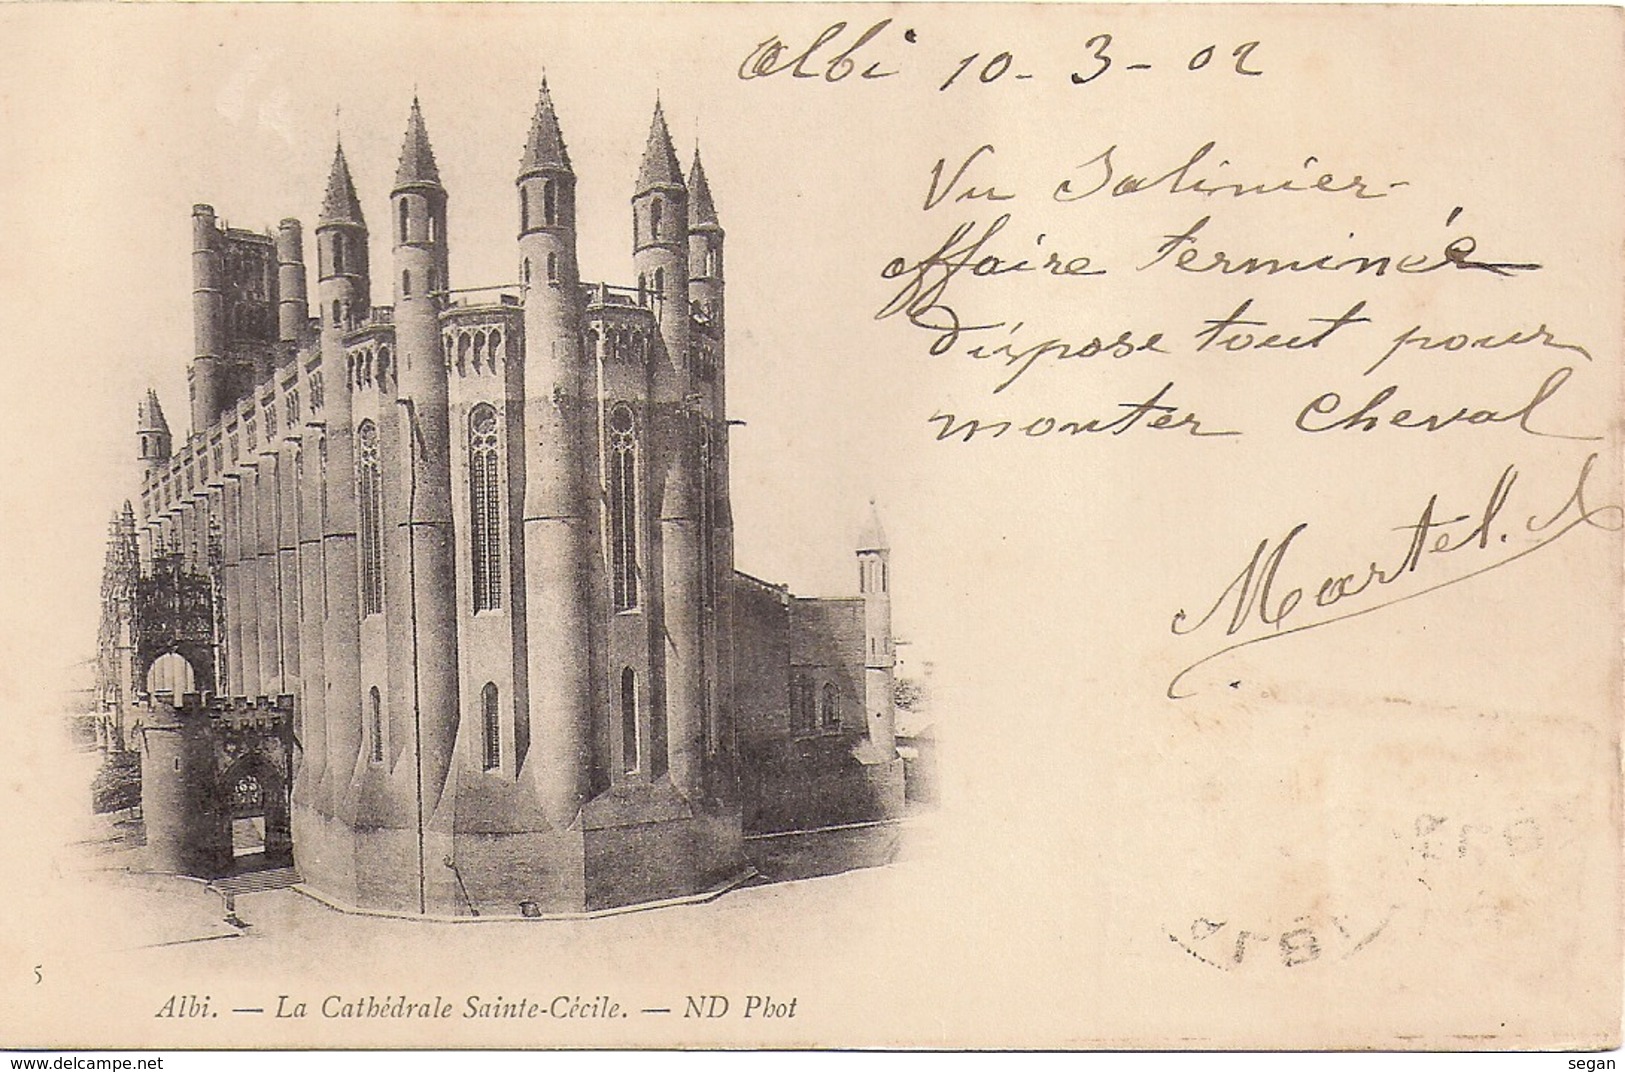 Albi 10-3-02
Vu Salinier
affaire terminée
dispose tout pour
monter cheval
Martel.
ALBI
5
Albi. — La Cathédrale Sainte-Cécile. — ND Phot
www.delcampe.net
segan